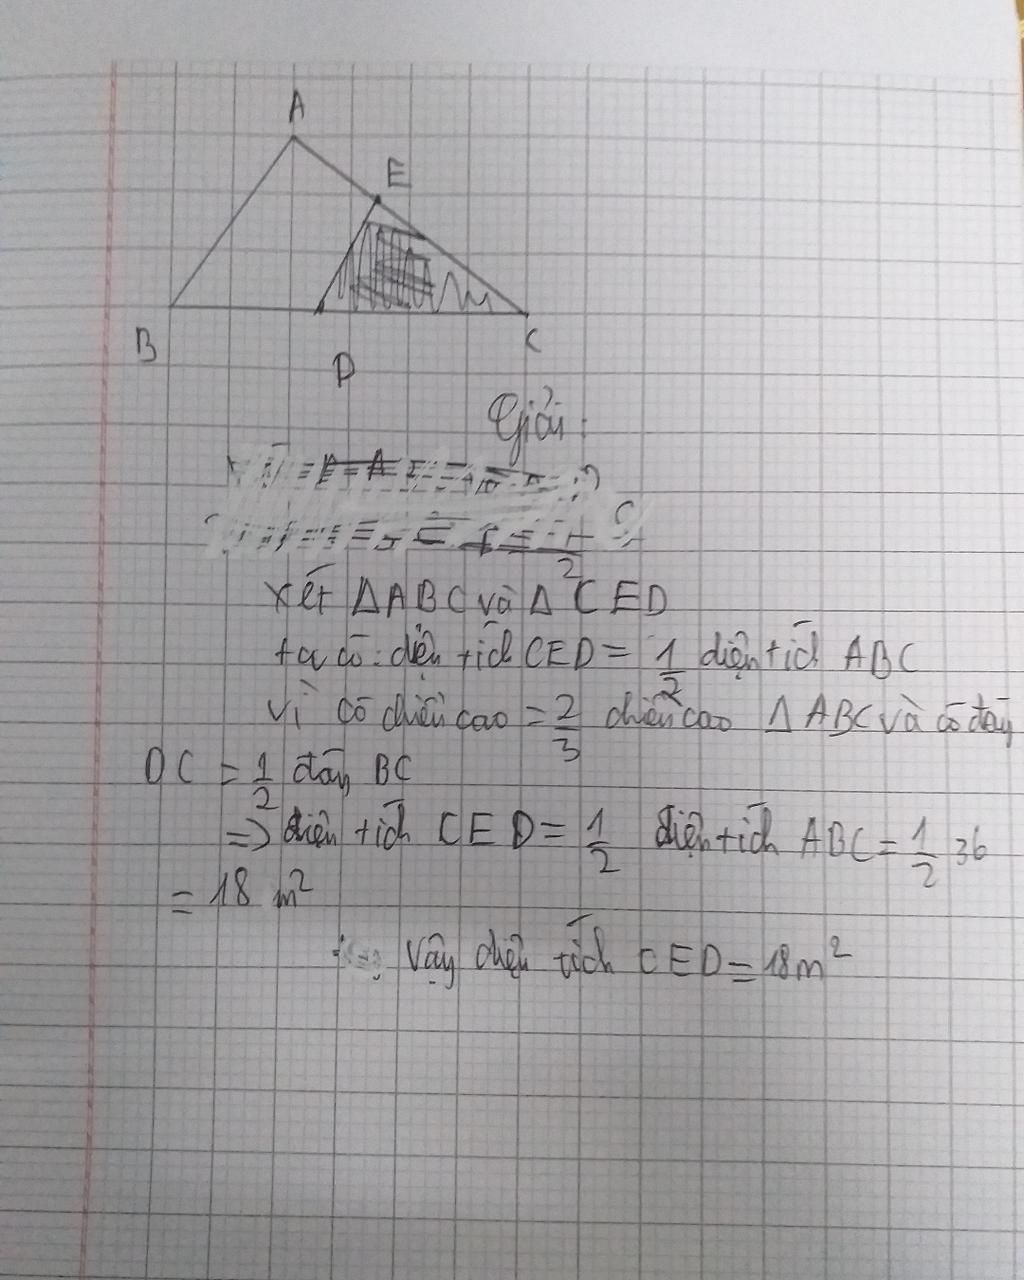 A
E
B
D
C
Giải:
2
xét ΔABC và Δ CED
ta có: diện tích CED = 1/2 diện tích ABC
vì có chiều cao = 2/3 chiều cao Δ ABC và có đáy
DC = 1/2 đáy BC
=> diện tích CED = 1/2 diện tích ABC = 1/2 36
= 18 m²
Vậy diện tích CED = 18m²